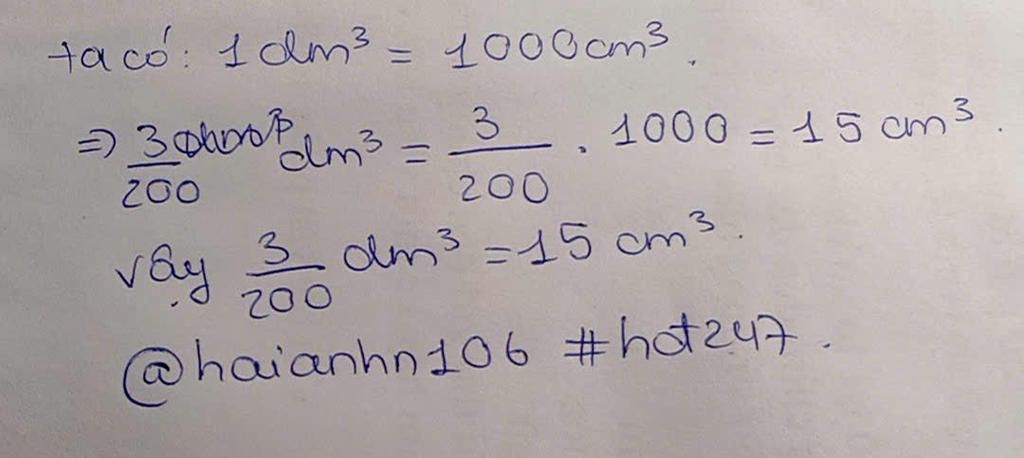 ta có: 1 dm³ = 1000cm³.
=> 3/200 dm³ = 3/200 . 1000 = 15 cm³.
vậy 3/200 dm³ = 15 cm³.
@haianhn106 #hot247.